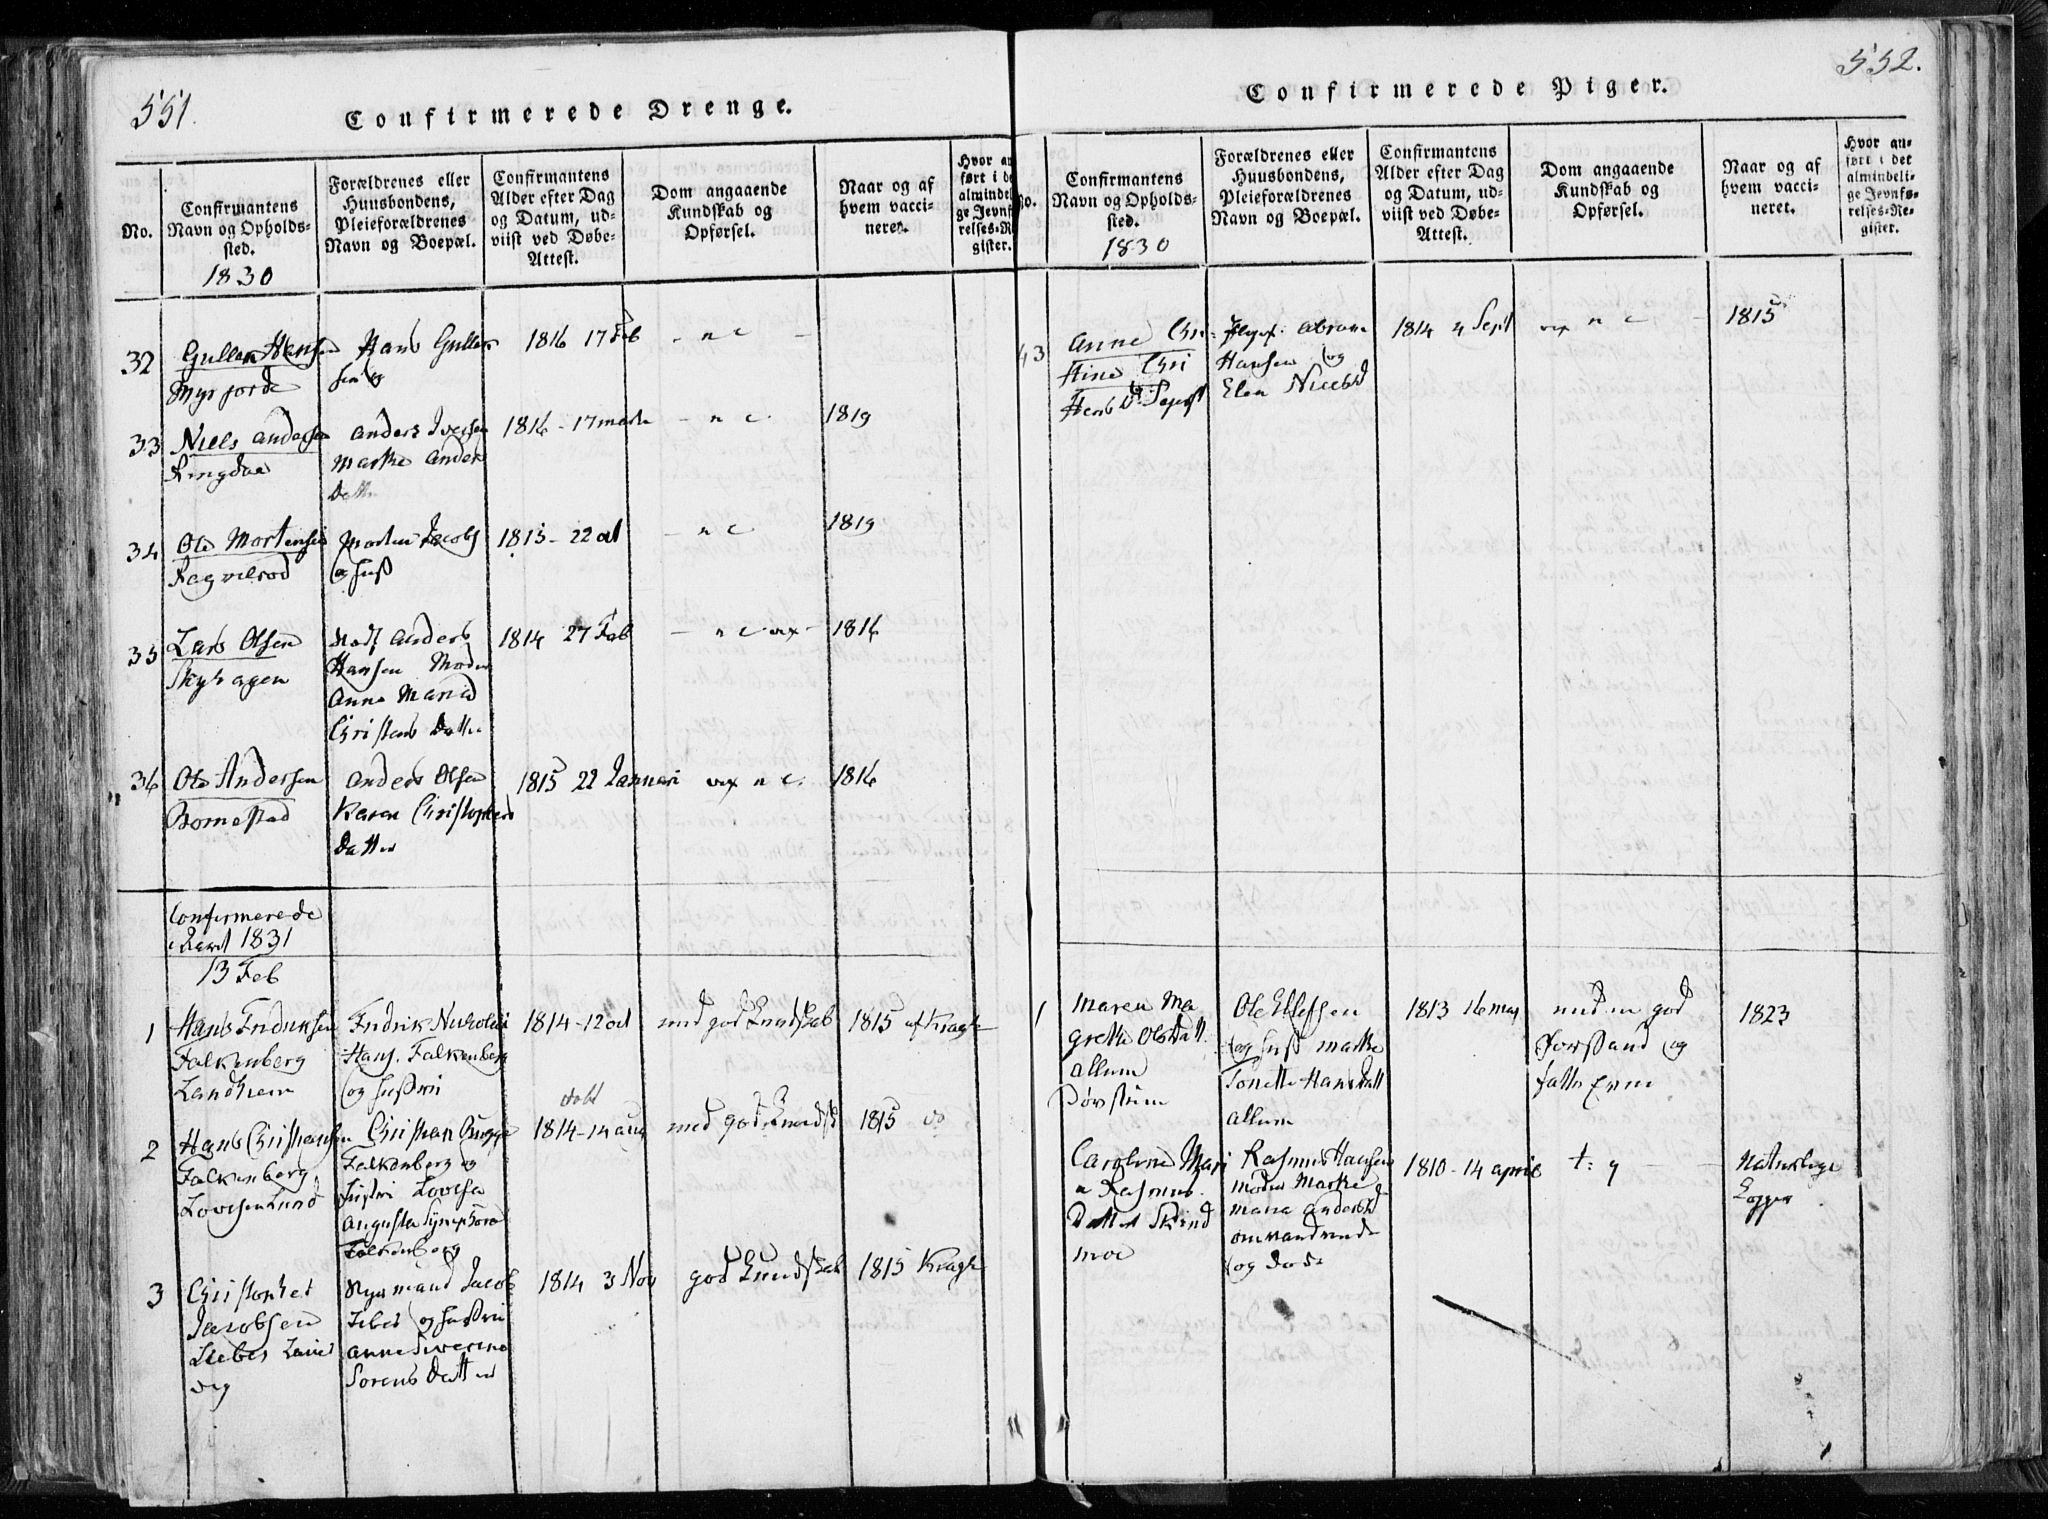 551.
Confirmerede Drenge.
No.
Confirmantens
Navn og Opholds-
sted.
1830
Forældrenes eller
Huusbondens,
Pleieforældrenes
Navn og Boepæl.
Confirmantens
Alder efter Dag
og Datum, ud-
viist ved Døbe-
Attest.
Dom angaaende
Kundskab og
Opførsel.
Naar og af
hvem vacci-
neret.
Hvor an
ført i de
almindel
ge Jevnf
relses-R
gister.
32
Gullek Hansen
Hans Gullik
sen og
1816 17 Feb
- n c -
33
Niels andersen
Ringdal
anders Iversen
Marthe anders
Datter
1816 - 17 marts
- n c
1819
34
Ole Mortensen
Morten Jacobs
og hust
1815 - 22 oct
- n c
1819
35
Lars Olsen
Skyhagen
anders
Hansen Moder
Anne Maria
Christens Datter
1814 27 Feb
- n c
1816
36
Ole Andersen
Bomestad
anders Olsen
Karen Christophers
Datter
1815 22 Januari
n c.
1816
Confirmerede
Aaret 1831
13 Feb
1
Hans Fridrksen
Falkenberg
Landhem
Fridrik Nicholai
Hans. Falkenberg
og hustru
1814 - 12 oct
med god Kundskab
1815 af Kragh
2
Hans Christiansen
Falkenberg
Lovisenlund
Christian Bugge
Falkenberg og
hustru Lovisa
Augusta Synephora
Falkenberg
døbt
1814 - 14 aug
med god Kundsk
1815 do
3
Christopher
Jacobsen
Liebes Laur
vig
Jacob
Liebes og hustru
anne Severine
Sorens Datter
1814 3 Nov
god Kundskab
1815 Kragh
552.
Confirmerede Piger.
No.
Confirmantens
Navn og Opholds-
sted.
1830
Forældrenes eller
Huusbondens,
Pleieforældrenes
Navn og Boepæl.
Confirmantens
Alder efter Dag
og Datum, ud-
viist ved Døbe-
Attest.
Dom angaaende
Kundskab og
Opførsel.
Naar og af
hvem vacci-
neret.
Hvor an-
ført i det
almindeli-
ge Jevnfø-
relses-Re-
gister.
43
Anne Chri
stine Chri
abram
Hansen og
Elen Nielsd
1814 4 Sept
n c -
1815
1
Maren Ma
grethe Olsdatt.
allum
Ole Ellefsen
og hust marthe
Tonette Hansdatt
allum
1813 16 may
med god
Forstand og
1823
Caroline Mari
a Rasmus
Datter Skind
moe
Rasmus Hansen
moder Marthe
maria andersd
omvandrende
og døde
1810 - 14 april
Naturlige
Kopper